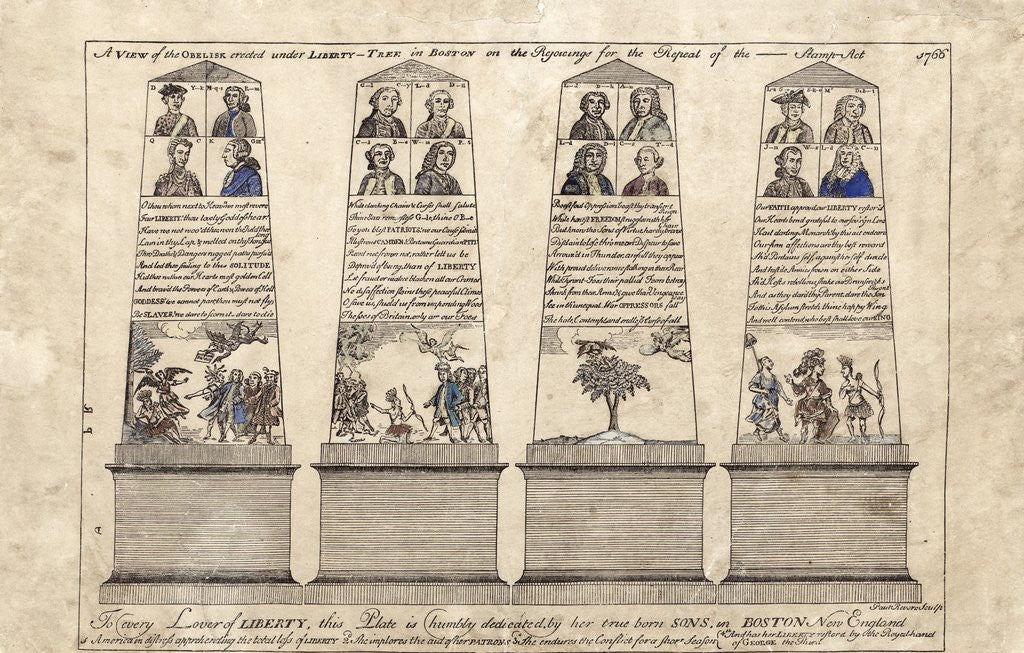 A VIEW of the OBELISK erected under LIBERTY-TREE in BOSTON on the Rejoicings for the Repeal of the —— Stamp-Act 1766
D Y-k M-q-s R-m
Q C K Ge III
O thou whom next to Heav'n we most revere
Fair LIBERTY! thou lovely Goddess hear
Have we not woo'd thee, won thee, held thee long
Lain in thy Lap & melted on thy Tongue
Thro' Deaths & Dangers rugged paths pursu'd
And led thee smiling to this SOLITUDE
Hid thee within our Hearts most golden Cell
And brav'd the Powers of Earth & Powers of Hell
GODDESS! we cannot part, thou must not fly
Be SLAVES! we dare to scorn it—dare to die
G-l C-y L-d D-n
C-l B-e W-m P-t
While clanking Chains & Curses shall salute
Thine Ears remorseless G-le, thine O B-e
To you blest PATRIOTS, we our Cause submit
Illustrious CAMDEN, Britains Guardian PITT
Recede not, frown not, rather let us be
Depriv'd of being, than of LIBERTY
Let fraud or malice blacken all our Crimes
No disaffection stains these peaceful Climes
O save us, shield us from impending Woes
The foes of Britain only are our Foes
L-d D-h A-n B-d
L-d D-e C-s T-d
Boast foul Oppression, boast thy transient Reign
While honest FREEDOM struggles with her Chain
But know the Sons of Virtue, hardy, brave
Disdain to lose thro' mean Despair to save
Arrouz'd in Thunder, awfull they appear
With proud deliverance stalking in their Rear
While Tyrant-Foes their pallid Fears betray
Shrink from their Arms, & give their Vengeance way
See in th' unequal War OPPRESSORS fall
The hate, Contempt, and endless Curse of all
L-d G-e S-k-e M r D-b-t
J-n W-s L-d C-n
Our FAITH approv'd, our LIBERTY restor'd
Our Hearts bend grateful to our sov'reign Lord
Hail darling Monarch! by this act endear'd
Our firm affections are thy best reward
Sh'd Britains self, against her self divide
And hostile Armies frown on either Side
Sh'd Hosts rebellious, shake our Brunswick's Throne
And as they dar'd thy Parent, dare the Son
To this Asylum stretch thine happy Wing
And we'll contend, who best shall love our KING
Paul Revere Sculp
To every Lover of LIBERTY, this Plate is humbly dedicated, by her true born SONS, in BOSTON New England
1 America in distress apprehending the total loss of LIBERTY 2 She implores the aid of her PATRONS 3 She endures the Conflict for a short Season 4 And has her LIBERTY restord by the Royal hand
of GEORGE the Third